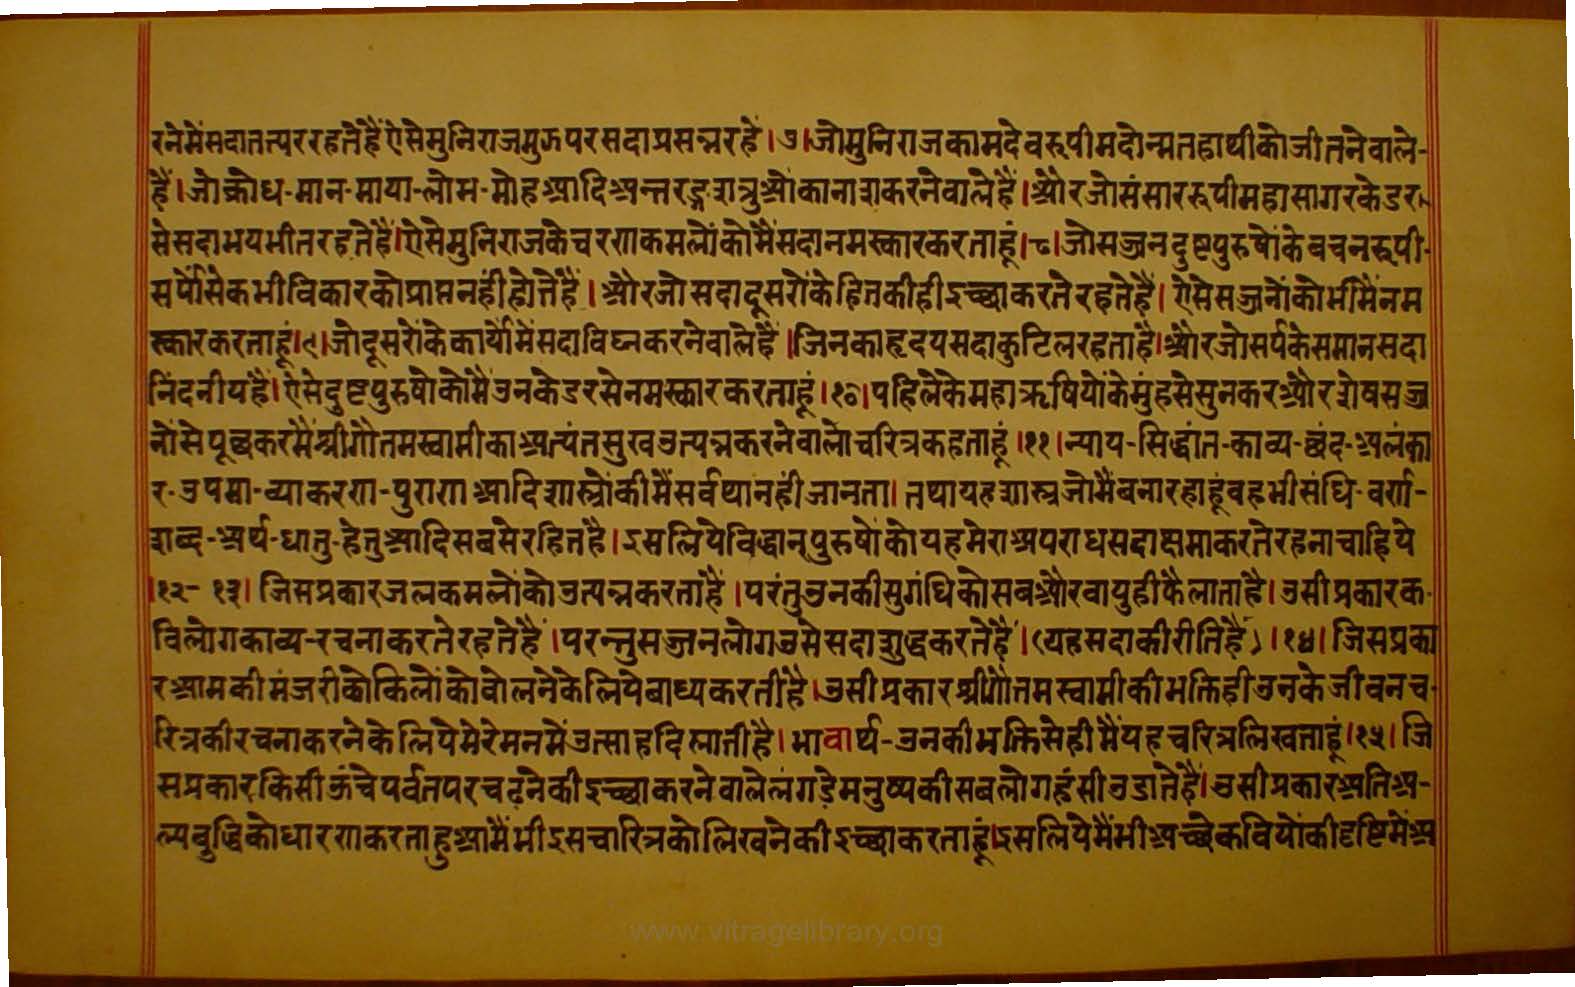 रनेमेंसदातत्पररहतेहैंऐसेमुनिराजमुझपरसदाप्रसन्नरहें।७।जोमुनिराजकामदेवरूपीमदोन्मतहाथीकोजीतनेवाले-
हैं।जोक्रोध-मान-माया-लोभ-मोहआदिअन्तरङ्गशत्रुओंकानाशकरनेवालेहैं।औरजोसंसाररूपीमहासागरकेडर
सेसदाभयभीतरहतेहैं।ऐसेमुनिराजकेचरणकमलोंकोमैंसदानमस्कारकरताहूं।८।जोसज्जनदुष्टपुरुषोंकेवचनरूपी-
सर्पोंसेकभीविकारकोप्राप्तनहींहोतेहैं।औरजोसदादूसरोंकेहितकीहीइच्छाकरतेरहतेहैं।ऐसेसज्जनोंकोभीमैंनम
स्कारकरताहूं।९।जोदूसरोंकेकार्योंमेंसदाविघ्नकरनेवालेहैं।जिनकाहृदयसदाकुटिलरहताहै।औरजोसर्पकेसमानसदा
निंदनीयहैं।ऐसेदुष्टपुरुषोंकोमैंउनकेडरसेनमस्कारकरताहूं।१०।पहिलेकेमहाऋषियोंकेमुंहसेसुनकरऔरशेषसज्ज
नोंसेपूछकरमैंश्रीगौतमस्वामीकाअत्यंतसुखउत्पन्नकरनेवालाचरित्रकहताहूं।११।न्याय-सिद्धांत-काव्य-छंद-अलंका
र-उपमा-व्याकरण-पुराणआदिशास्त्रोंकोमैंसर्वथानहींजानता।तथायहशास्त्रजोमैंबनारहाहूंवहभीसंधि-वर्ण-
शब्द-अर्थ-धातु-हेतुआदिसबसेरहितहै।इसलियेविद्वान्पुरुषोंकोयहमेराअपराधसदाक्षमाकरतेरहनाचाहिये
।१२-१३।जिसप्रकारजलकमलोंकोउत्पन्नकरताहै।परंतुउनकीसुगंधिकोसबऔरवायुहीफैलाताहै।उसीप्रकारक-
विलोगकाव्य-रचनाकरतेरहतेहैं।परन्तुसज्जनलोगउसेसदाशुद्धकरतेहैं।(यहसदाकीरीतिहै)।१४।जिसप्रका
रआमकीमंजरीकोकिलोंकोबोलनेकेलियेबाध्यकरतीहै।उसीप्रकारश्रीगौतमस्वामीकीभक्तिहीउनकेजीवनच-
रित्रकीरचनाकरनेकेलियेमेरेमनमेंउत्साहदिलातीहै।भावार्थ-उनकीभक्तिसेहीमैंयहचरित्रलिखताहूं।१५।जि
सप्रकारकिसीऊंचेपर्वतपरचढ़नेकीइच्छाकरनेवालेलंगड़ेमनुष्यकीसबलोगहंसीउडातेहैं।उसीप्रकारअतिअ-
ल्पबुद्धिकोधारणकरताहुआमैंभीइसचारित्रकोलिखनेकीइच्छाकरताहूं।इसलियेमैंभीअच्छेकवियोंकीदृष्टिमेंअ
www.vitragelibrary.org